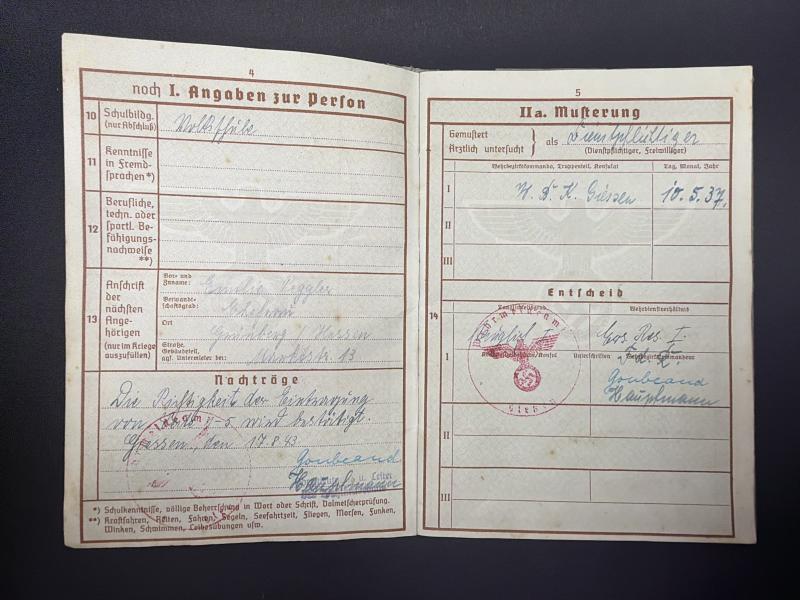 4
noch I. Angaben zur Person
10 Schulbildg.
(nur Abschluß)
Volksschule
11 Kenntnisse
in Fremd-
sprachen*)
12 Berufliche,
techn. oder
sportl. Be-
fähigungs-
nachweise
**)
13 Anschrift
der
nächsten
Ange-
hörigen
(nur im Kriege
auszufüllen)
Vor- und
Zuname: Emilie
Verwandt-
schaftsgrad: Ehefrau
Ort Grünberg / Hessen
Straße,
Gebäudeteil,
ggf. Untermieter bei: Marktstr. 13
Nachträge
Die Richtigkeit der Eintragung
von 1-5 wird bestätigt.
Giessen, den 17.8.43
Hauptmann
u. Leiter
*) Schulkenntnisse, völlige Beherrschung in Wort oder Schrift, Dolmetscherprüfung.
**) Kraftfahren, Reiten, Fahren, Segeln, Seefahrtzeit, Fliegen, Morsen, Funken,
Winken, Schwimmen, Leibesübungen usw.
5
IIa. Musterung
Gemustert
Ärztlich untersucht } als Dienstpflichtiger
(Dienstpflichtiger, Freiwilliger)
Wehrbezirkskommando, Truppenteil, Konsulat Tag, Monat, Jahr
I W. B. K. Giessen 10.5.37.
II
III
Entscheid
14 Tauglichkeitsgrad Wehrdienstverhältnis
Tauglich 1 Ers. Res. I.
I Unterschriften
Hauptmann
Gießen
II
III